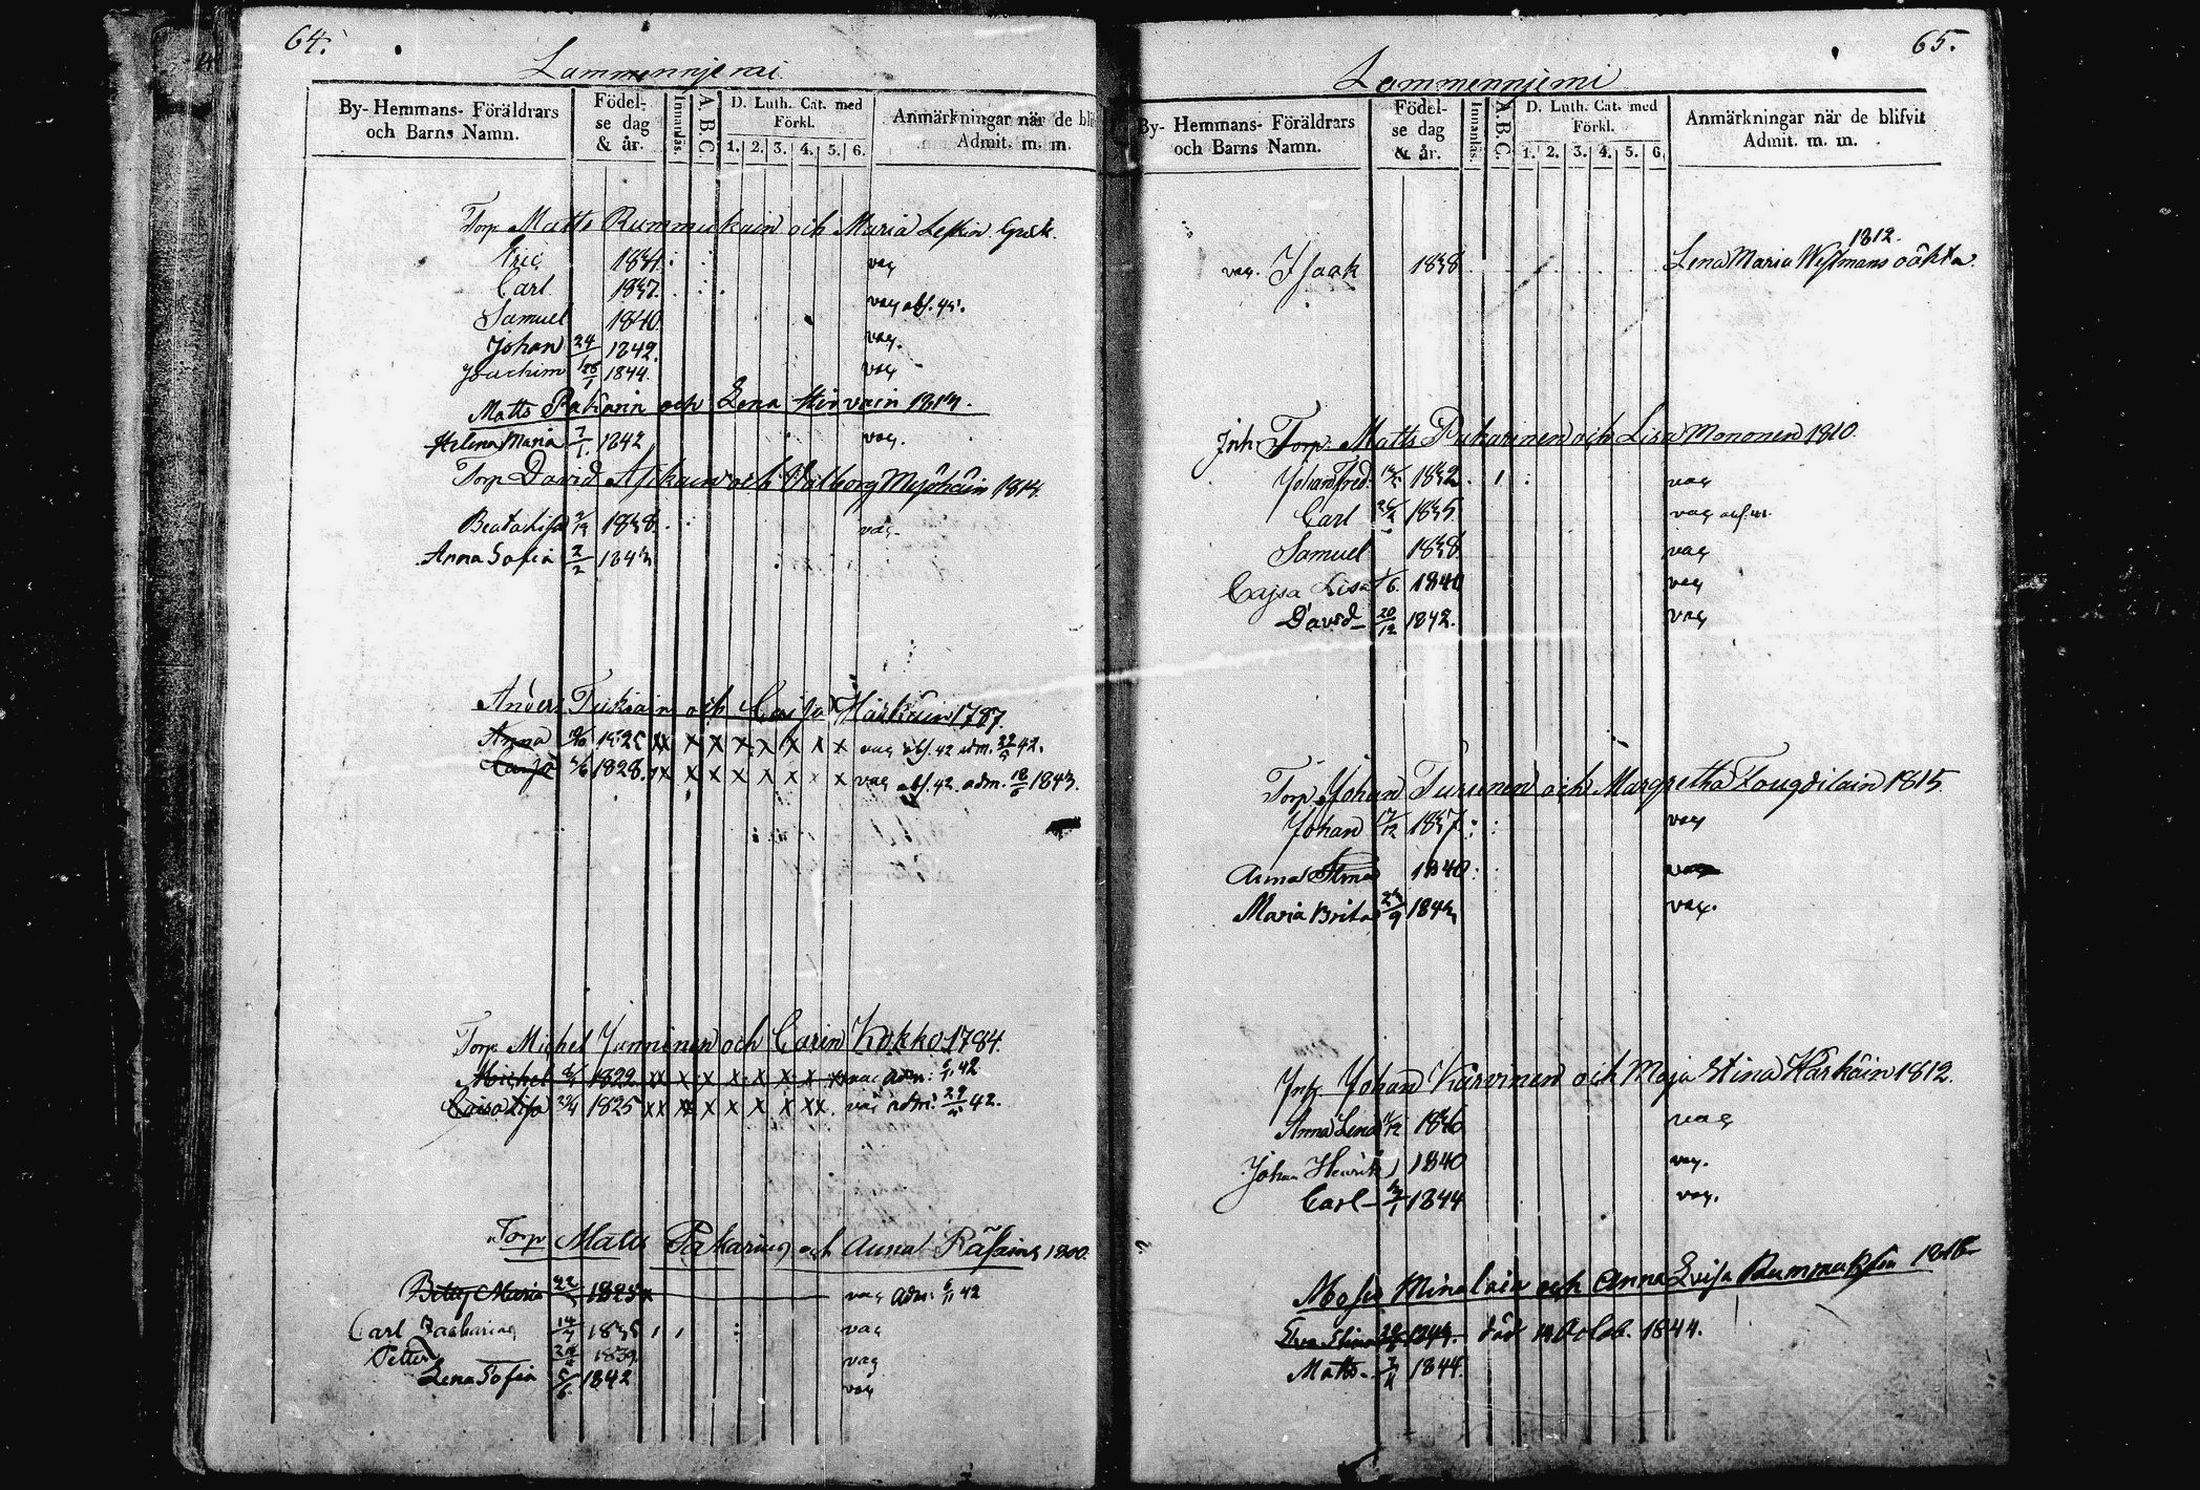 64.
Lammenniemi
By- Hemmans- Föräldrars och Barns Namn.
Födel- se dag & år.
Innanläs.
A. B. C.
D. Luth. Cat. med Förkl.
1. 2. 3. 4. 5. 6.
Anmärkningar när de bli
Admit. m. m.
Torp Matts Rummukain och Maria
Eric 1834 vac
Carl 1837 vac abs. 45.
Samuel 1840
Johan 24 1842 vac.
Joachim 1844 vac
Matts Pakarin och Lena Hirvoin 1813.
Helena Maria 7/1 1842 vac.
Torp David och Valborg 1814
Beata Lisa 1838 vac.
Anna Sofia 2/2 1843
Anders Tuckiain och Caisa Härkäin 1787.
Anna 1825 xx x x x x x x x vac abs. 42 adm. 42.
Caisa 1828. x x x x x x x vac abs. 42 adm. 18/6 1843.
Torp Michel Junninen och Carin Kokko 1784.
Michel 1822 xx x x x x x vac adm. 42
Caisa Lisa 1825 xx x x x x x xx. vac adm. 42.
Torp Matts Pakarinen och Anna Räsäin 1800.
Betty Maria 22 1825 vac adm. 42
Carl Zacharias 14/7 1835 vac
Petter 1839 vac
Lena Sofia 5/6 1842 vac
65.
Lammenniemi
By- Hemmans- Föräldrars och Barns Namn.
Födel- se dag & år.
Innanläs.
A. B. C.
D. Luth. Cat. med Förkl.
1. 2. 3. 4. 5. 6.
Anmärkningar när de blifvit
Admit. m. m.
1812.
vac. Isaak 1838 Lena Maria Westmans oäkta.
Inh. Torp. Matts Pakarinen och Lisa Mononen 1810.
Johan Fred. 1832 vac
Carl 1835 vac
Samuel 1838 vac
Cajsa Lisa 1/6 1840 vac
David 20/12 1842. vac
Torp Johan Turunen och Margretha 1815
Johan 12 1837 vac
Anna Stina 1840 vac
Maria Brita 23/9 1843 vac.
Inh. Johan Karvinen och Maja Stina Härkäin 1812.
Anna Lena 12 1836 vac
Johan Henrik 1840 vac.
Carl 1844 vac.
Moses Minalain och Anna Lvisa Rummuksin
Eva Stina 1843. död Octob. 1844.
Matts 1844.